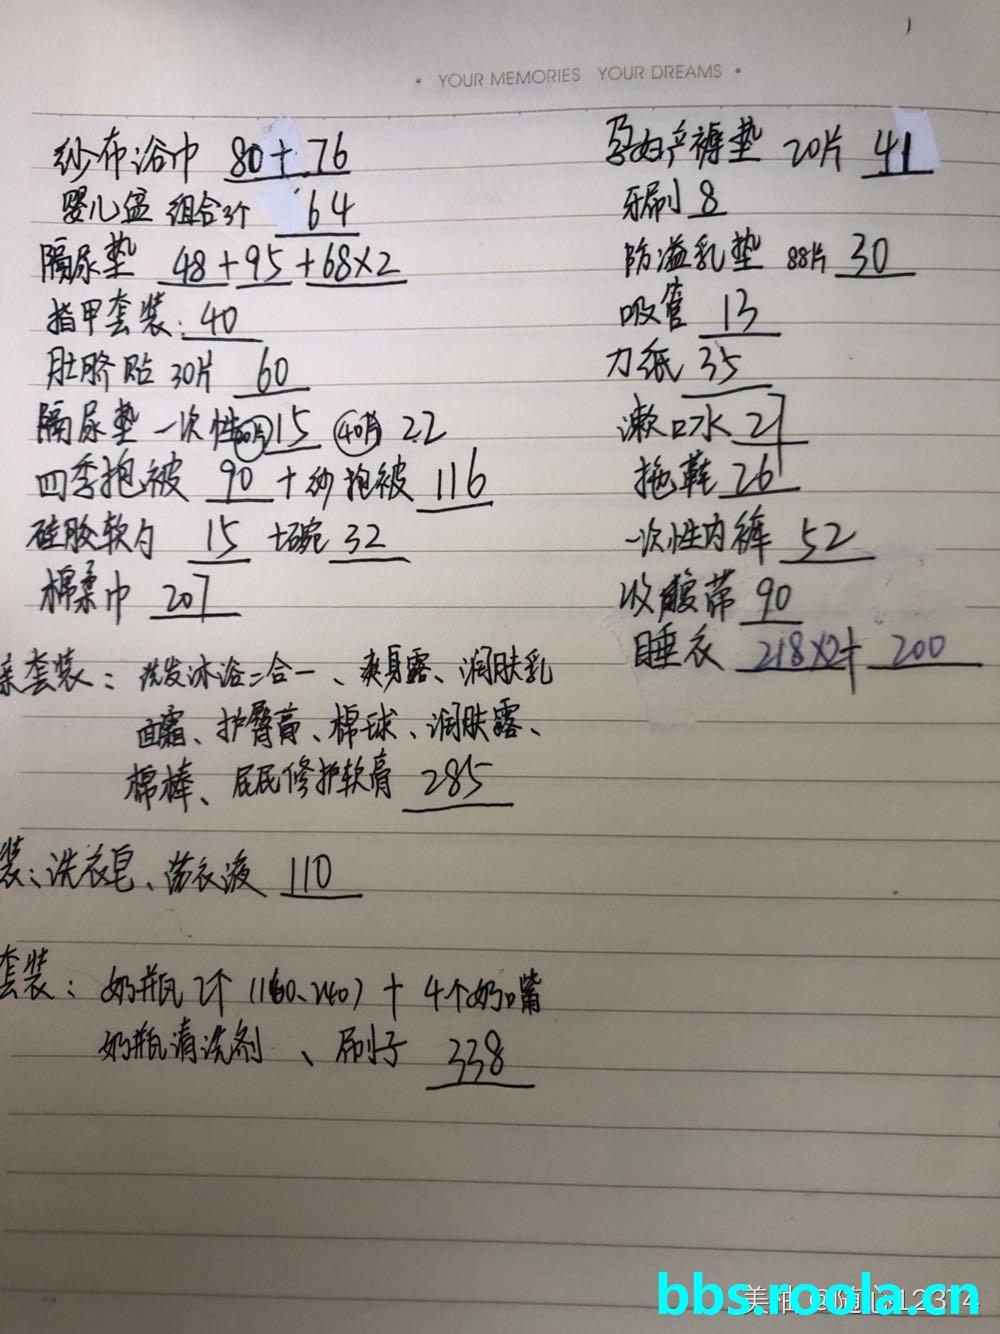 YOUR MEMORIES YOUR DREAMS
纱布浴巾 80+76
婴儿盆 组合3个 64
隔尿垫 48+95+68×2
指甲套装: 40
肚脐贴 30片 60
隔尿垫 一次性 15 40片 22
四季抱被 90 + 纱抱被 116
硅胶软勺 15 +碗 32
棉柔巾 207
套装: 洗发沐浴二合一、爽身露、润肤乳
面霜、护臀膏、棉球、润肤露、
棉棒、屁屁修护软膏 285
装: 洗衣皂、洗衣液 110
套装: 奶瓶2个(160、240) + 4个奶嘴
奶瓶清洗剂、刷子 338
孕妇产褥垫 20片 41
牙刷 8
防溢乳垫 88片 30
吸管 13
刀纸 35
漱口水 27
拖鞋 26
一次性内裤 52
收腹带 90
睡衣 218×2+ 200
bbs.roola.cn